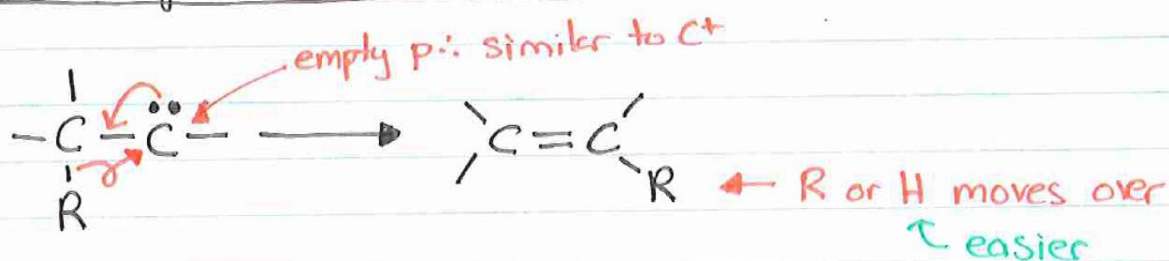 empty p ∴ similar to C+
– C – C̈ – → C = C
R
R ← R or H moves over
↑ easier